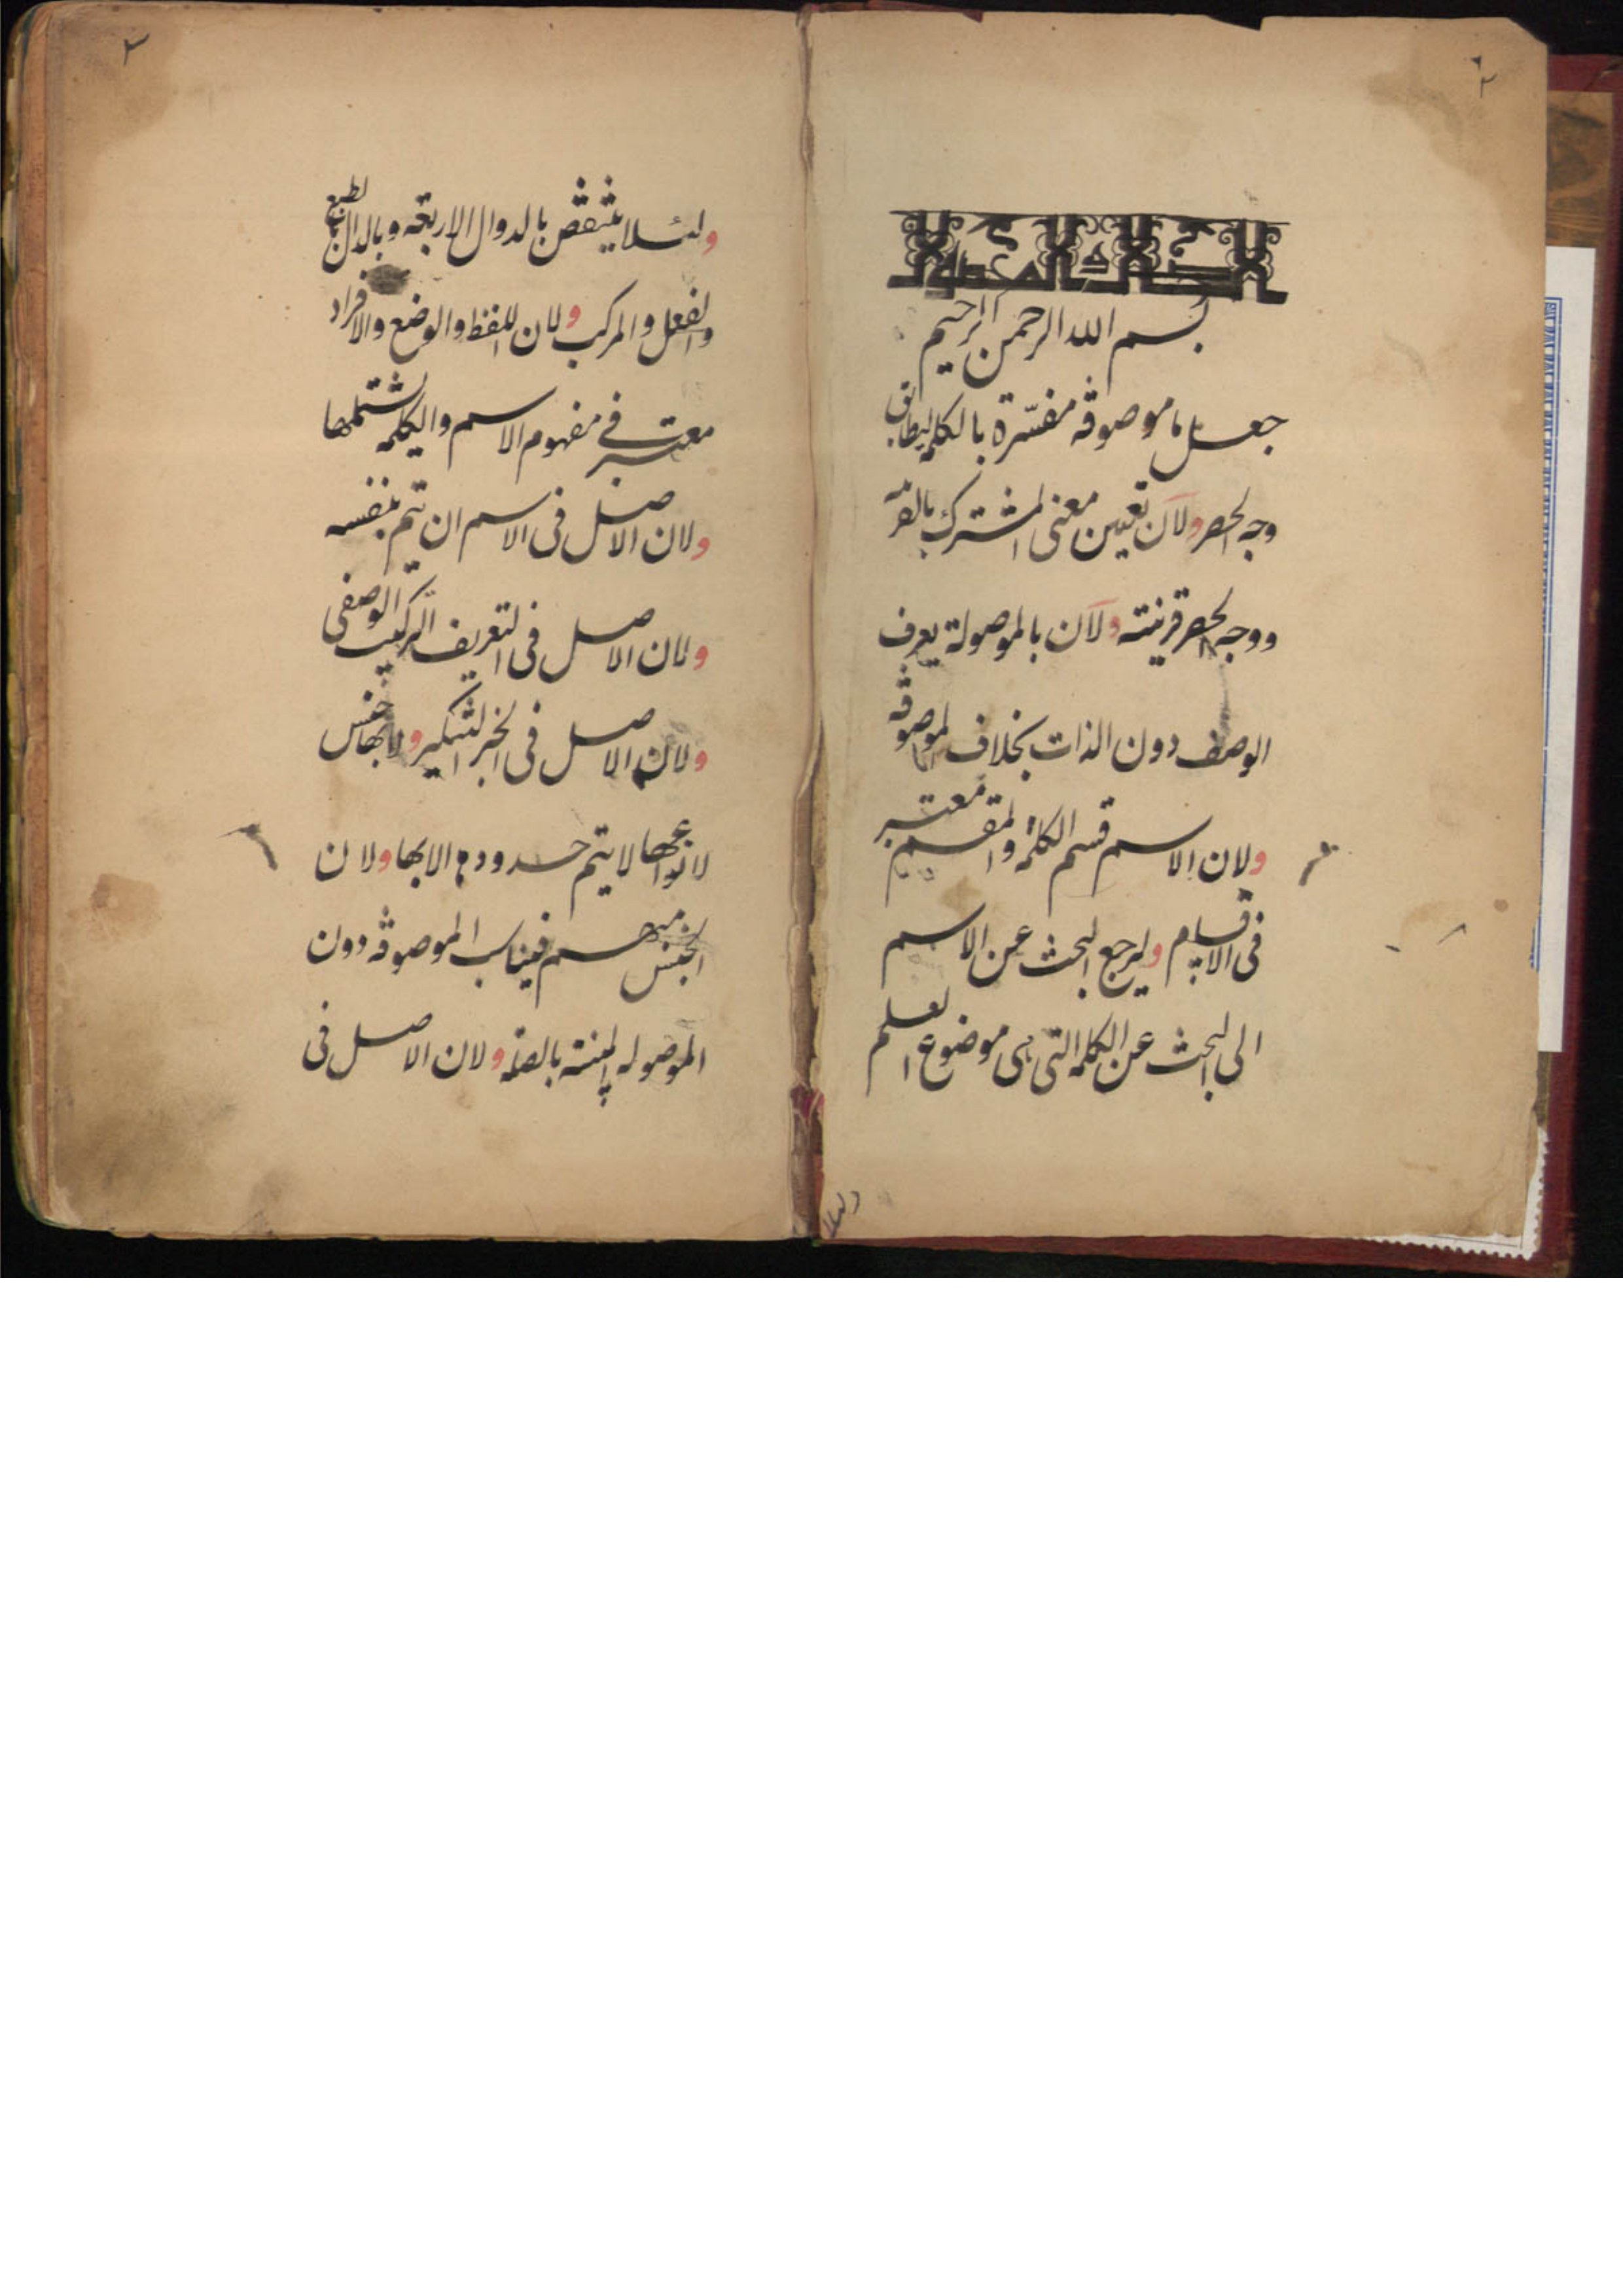 بسم الله الرحمن الرحيم
جعل ما موصوفة مفسّرة بالكلمة ليطابق
وجه الحصر ولان تعيين معنى المشترك بالقرينة
ووجه الحصر قرينته ولان بالموصولة يعرف
الوصف دون الذات بخلاف الموصوفة
ولان الاسم قسم الكلمة والمقسم معتبر
فى الاقسام وليرجع البحث عن الاسم
الى البحث عن الكلمة التى هى موضوع العلم
ولئلا
ولئلا ينتقض بالدوال الاربعة وبالدال بالطبع
والفعل والمركب ولان اللفظ والوضع والافراد
معتبر فى مفهوم الاسم والكلمة تشتملها
ولان الاصل فى الاسم ان يتم بنفسه
ولان الاصل فى التعريف التركيب الوصفى
ولان الاصل فى الخبر التنكير ولانها جنس
لانواعها لا يتم حدوده الا بها ولان
الجنس مبهم فيناسب الموصوفة دون
الموصولة المبينة بالصلة ولان الاصل فى